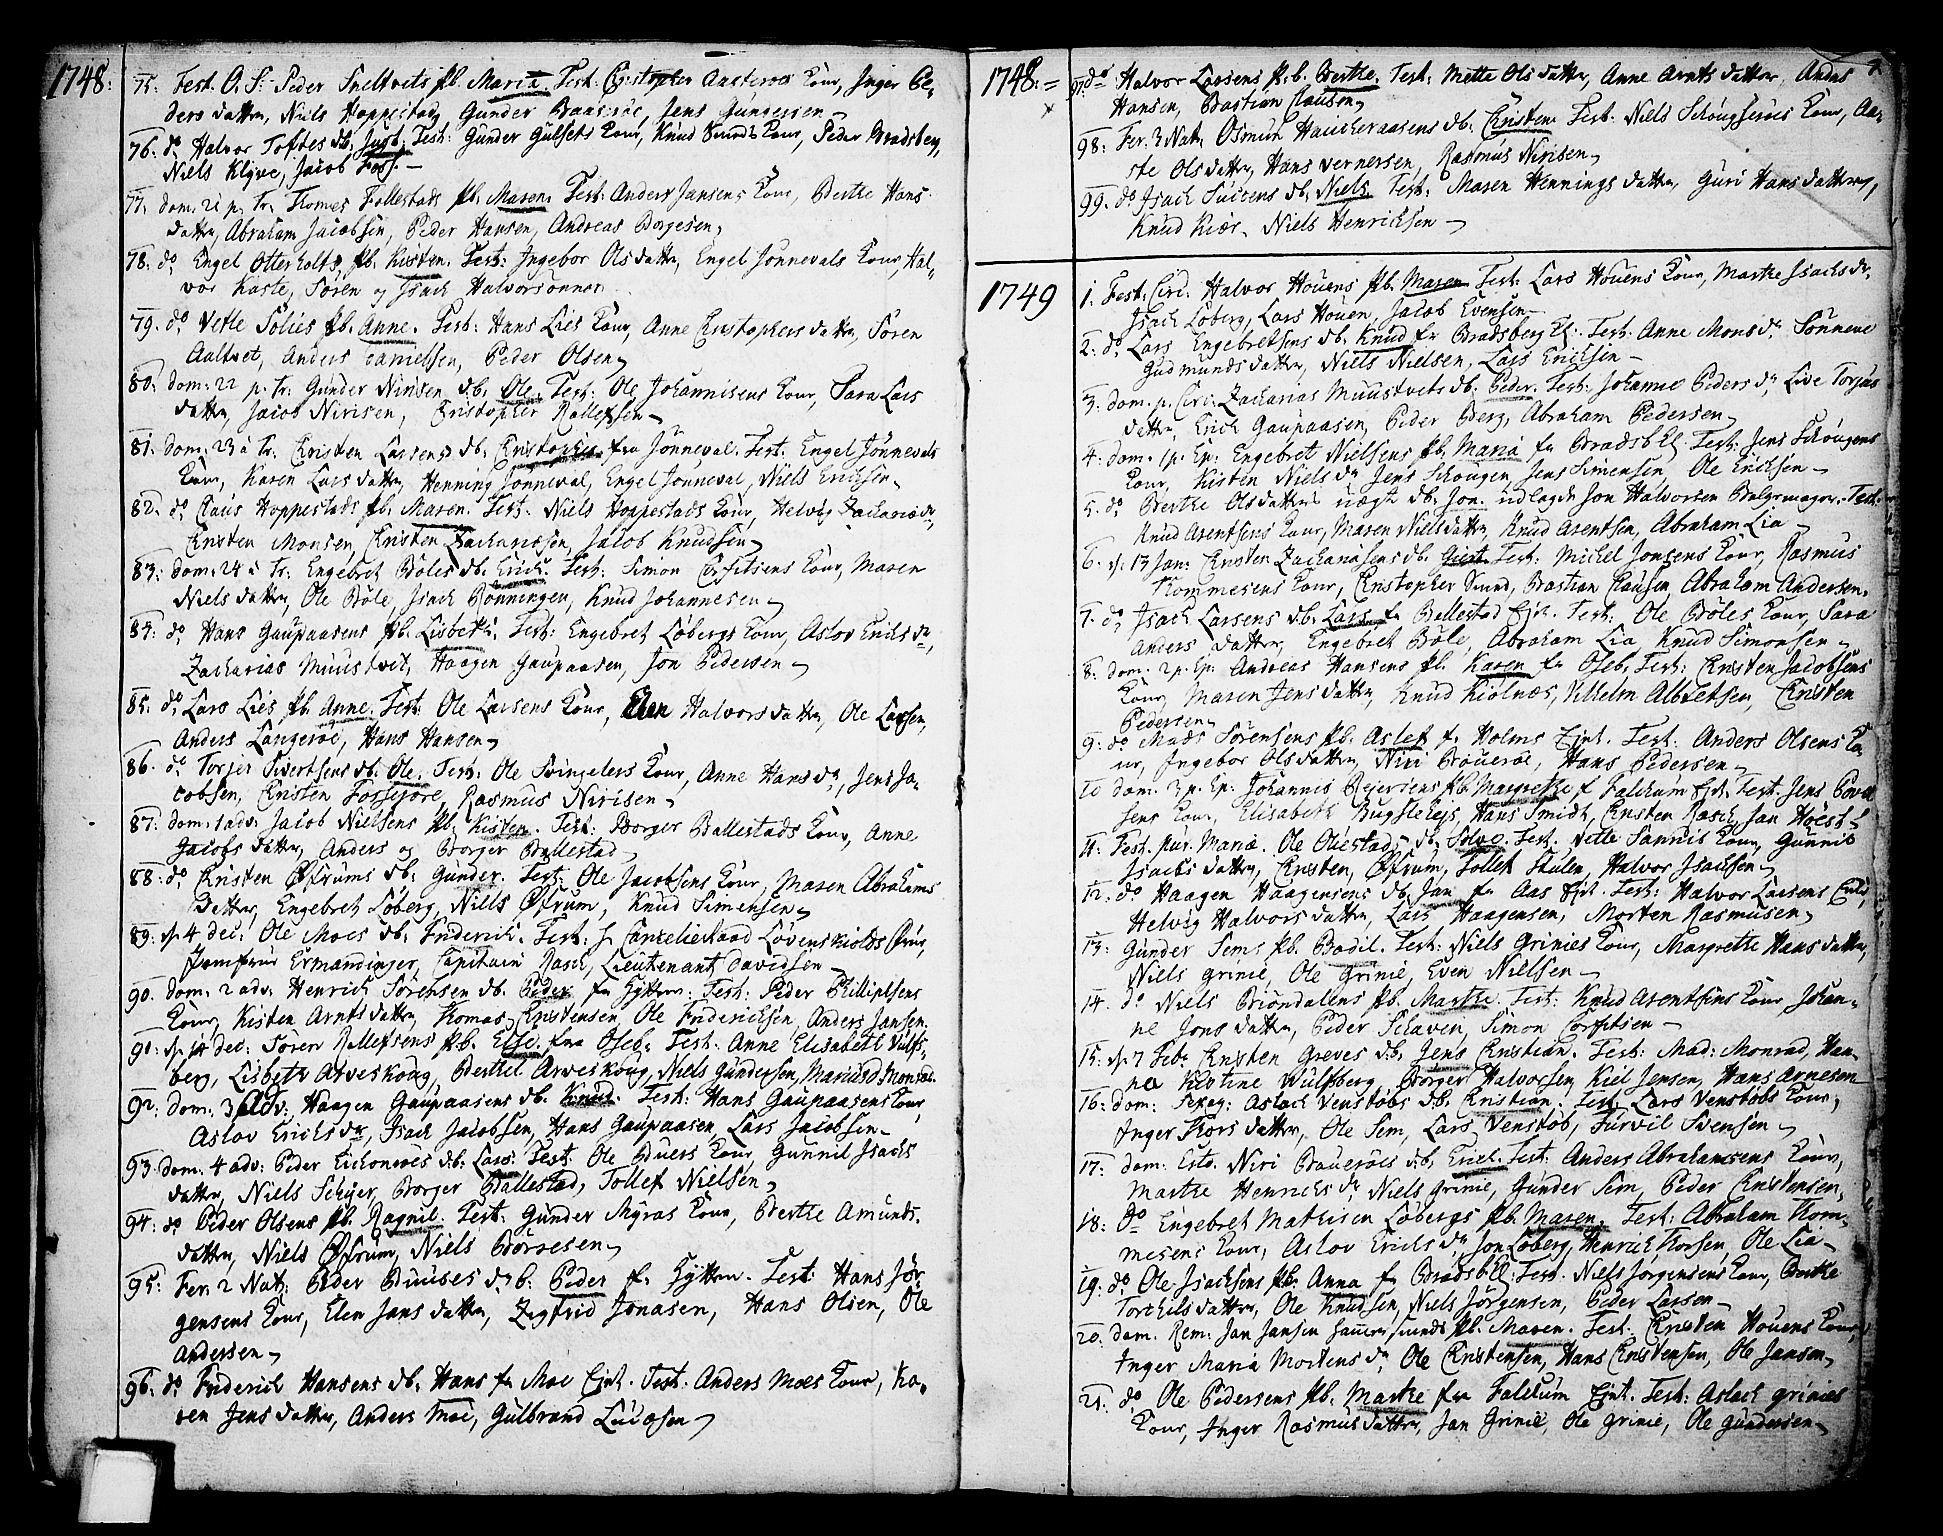 1748:
75. Fest. O. S: Peder Sneltvets pb. Maria. Test: Christopher Aasterøes Kone, Inger Pe-
ders datter, Niels Hoppestad, Gunder Baaserøe, Jens Gundersen
76. do Halvor Toftes db. Just. Test: Gunder Gulsets Kone, Knud Sunds Kone, Peder Bradsberg,
Niels Klyve, Jacob Foss.
77. dom. 21 p. Tr. Thomes Follestads pb. Maren. Test: Anders Jansens Kone, Berthe Hans
datter, Abraham Jacobsen, Peder Hansen, Andreas Borgesen,
78. do Engel Otterholts pb. Kisten. Test: Ingebor Olsdatter, Engel Jønnevals Kone, Hal-
vor Kaste, Søren og Isach Halvorsønner
79. do Vetle Solies pb. Anne. Test: Hans Lies Kone, Anne Christophers datter, Søren
Aaltvet, Anders Danielsen, Peder Olsen,
80. dom: 22 p. Tr. Gunder Nirisen db. Ole. Test: Ole Johannisens Kone, Sara Lars
datter, Jacob Nirisen, Christopher Rollefsen
81. dom: 23 a Tr. Christen Larsens db. Christopher fra Jønneval. Test. Engel Jønnevals
Kone, Karen Lars datter, Henning Jønneval, Engel Jonneval, Niels Erichsen,
82. do Claus Hoppestads pb. Maren. Test. Niels Hoppestads Kone, Helvig Zacharisdr,
Christen Monsen, Christen Zachariæsen, Jacob Knudsen
83. dom: 24 a Tr. Engebret Bøles db. Erich. Test: Simon Corfitsens Kone, Maren
Niels datter, Ole Bøle, Isach Bønningen, Knud Johannesen
84. do Hans Gaupaasens pb. Lisbeth. Test: Engebret Løbergs Kone, Aslov Erichs dr,
Zacharias Muustvet, Haagen Gaupaasen, Jon Pedersen
85. do Lars Lies pb. Anne. Test: Ole Larsens Kone, Elen Halvors datter, Ole Larsen,
Anders Langerøe, Hans Hansen
86. do Torger Sivertsens db. Ole. Test: Ole Svingelers Kone, Anne Hans dr, Jens Ja-
cobsen, Christen Fossejore, Rasmus Nirisen
87. dom: 1 adv: Jacob Nielsens pb. Kisten. Test: Borger Ballestads Kone, Anne
Jacobs datter, Anders og Borger Ballestad
88. do Christen Øfrums db. Gunder. Test: Ole Jacobsens Kone, Maren Abrahams
datter, Engebret Løberg, Nills Øfrum, Knud Simensen
89. d. 4 dec: Ole Moes db. Friderich. Test: Hr Cancelieraad Løvenskiolds Frue,
Jomfrue Ermandinger, Capitain Rasch, Lieutenant Davidsen
90. dom: 2 adv: Henrich Sørensen db. Peder fra Hytten. Test: Peder Phillipsens
Kone, Kisten Arntsdatter, Thomas Christensen, Ole Friderichsen, Anders Jansen
91. d. 14 dec: Søren Rollefsens pb. Else fra Oseb. Test: Anne Elisabeth Vulfs-
berg, Lisbeth Arveskoug, Berthel Arveskoug, Niels Gundersen, Marius d. Monrad.
92. dom: 3 Adv: Haagen Gaupaasens db. Knud. Test: Hans Gaupaasens Kone,
Aslov Erichs dr, Isach Jacobsen, Hans Gaupaasen, Lars Jacobsen
93. dom: 4 adv: Peder Eichoneses db. Lars. Test: Ole Buers Kone, Gunnil Isachs
datter, Niels Schyer, Borger Ballestad, Tollef Nielsen
94. do Peder Olsens pb. Ragnil. Test: Gunder Myras Kone, Berthe Amunds
datter, Niels Øfrum, Niels Børresen
95. Fer. 2 Nat: Peder Buuses db. Peder fr Hytten. Test: Hans Jør-
gensens Kone, Elen Jans datter, Zigfrid Jonasen, Hans Olsen, Ole
Andersen
96. do Friderich Hansens db. Hans fr Moe Eie. Test: Anders Moes Kone, Ka-
ren Jens datter, Anders Moe, Gulbrand Lucæsen
1748.
97. do Halvor Larsens pb. Berthe. Test: Mette Olsdatter, Anne Arntsdatter, Anders
Hansen, Bastian Clausen,
98. Fer: 3 Nat: Osmun Haucheraasens db. Christen. Test. Niels Schougserøes Kone, Aa-
ste Olsdatter, Hans Vernersen, Rasmus Nirisen,
99. do Isach Suiceens db. Niels. Test: Maren Hennings datter, Guri Hansdatter,
Knud Kiær, Niels Henrichsen
1749
1. Fest: Circ: Halvor Houens pb. Maren. Test: Lars Houens Kone, Marthe Isachsdr,
Isach Løberg, Lars Houen, Jacob Evensen
2. do Lars Engebretsens db. Knud fr Bradsberg El. Test: Anne Mons dr Sønneve
Gudmunds datter, Niels Nielsen, Lars Erichsen
3. dom. p. Circ: Zacharias Muustvets db. Peder. Test: Johanne Peders dr, Live Torjus
datter, Erich Gaupaasen, Peder Berg, Abraham Pedersen
4. dom. 1 p. Ep: Engebret Nielsens pb. Maria fr Bradsb El. Test: Jens Schougens
Kone, Kisten Niels dr Jens Schougen, Jens Simensen, Ole Erichsen
5. do Berthe Olsdatters uægte db. Jon. udlagde Jon Halvorsen Bælgemager. Test.
Knud Arentsens Kone, Maren Nielsdatter, Knud Arentsen, Abraham Lia
6. d. 13 Jan: Christen Zachariasens db. Giert. Test: Michel Jonsens Kone, Rasmus
Thommesens Kone, Christopher Sund, Bastian Clausen, Abraham Andersen,
7. do Isach Larsens db. Lars fr Ballestad Eje. Test: Ole Bøles Kone, Sara
Anders datter, Engebret Bøle, Abraham Lia, Knud Simonsen
8. dom. 2 p. Ep. Andreas Hansens pb. Karen fr Oseb. Test: Christen Jacobsens
Kone, Maren Jensdatter, Knud Kiølnæs, Vilhelm Albretsen, Christen
Pedersen,
9. do Mads Sørensens pb. Aslef fr Holms Eje. Test: Anders Olsens Ko-
ne, Ingebor Olsdatter, Niri Brouerøe, Hans Pedersen
10 dom. 3 p. Ep: Johannis Rejersens pb. Margrethe f. Falchum Eje. Test. Jens Povel
sens Kone, Elisabeth Bugslejs, Hans Smidt, Christen Rasch, Jan Hoest
11. Fest. pur. Mariæ. Ole Oliestad db. Solve. Test. Vetle Sannis Kone, Gunnil
Isachs datter, Christen Øfrum, Tollef Skulen, Halvor Isachsen
12. do Haagen Haagensens db. Jan fr Aas Eje. Test: Halvor Larsens Enke,
Helvig Halvors datter, Lars Haagensen, Morten Rasmusen,
13. Gunder Sems pb. Bodil. Test: Niels Grinies Kone, Margrethe Hans datter,
Niels Grinie, Ole Grinie, Even Nielsen
14. do Niels Briøndalens pb. Marthe. Test: Knud Arentsens Kone, Johan-
ne Jons datter, Peder Schaven, Simon Corfitsen
15. d. 7 Feb. Christen Greves db. Jens Christian. Test: Mad: Monrad, Han-
na Kistine Wulfsberg, Borger Halvorsen, Kiel Jensen, Hans Arnesen
16: dom: Sexag: Aslach Venstøbs db. Christian. Test: Lars Venstøbs Kone,
Inger Thors datter, Ole Sem, Lars Venstøb, Turvil Svensen
17. dom. Esto. Niri Bøuerøes db. Erich. Test: Anders Abrahamsens Kone,
Marthe Henrichs dr, Niels Grinie, Gunder Sem, Peder Christensen,
18: do Engebret Mathisen Løbergs pb. Maren. Test: Abraham Thom-
mesens Kone, Aslov Erichs dr, Jon Løberg, Henrich Thorsen, Ole Lia
19. do Ole Isachsens pb. Anna fr Bradsb El: Test. Niels Jørgensens Kone, Berthe
Torchilsdatter, Ole Knudsen, Niels Jørgensen, Peder Larsen
20. dom. Rem: Jan Jansen pb. Maren. Test. Christen Houens Kone,
Inger Maria Mortens dr, Ole Christensen, Hans Christensen, Ole Jansen,
21. do Ole Pedersens pb. Marthe fra Falchum Eje. Test: Aslach Grinies
Kone, Inger Rasmusdatter, Jan Grinie, Ole Grinie, Ole Gundersen